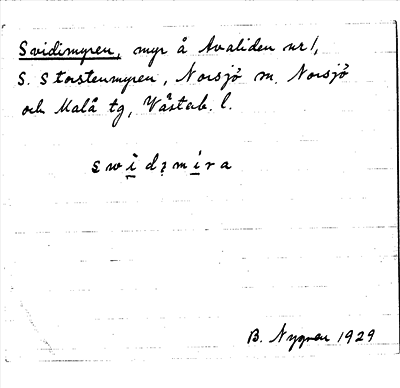 Svidimyren, myr å Avaliden nr 1,
S. Storstenmyren, Norsjö sn. Norsjö
och Malå tg, Västerb. l.
swìdımìra
B. Nygren 1929